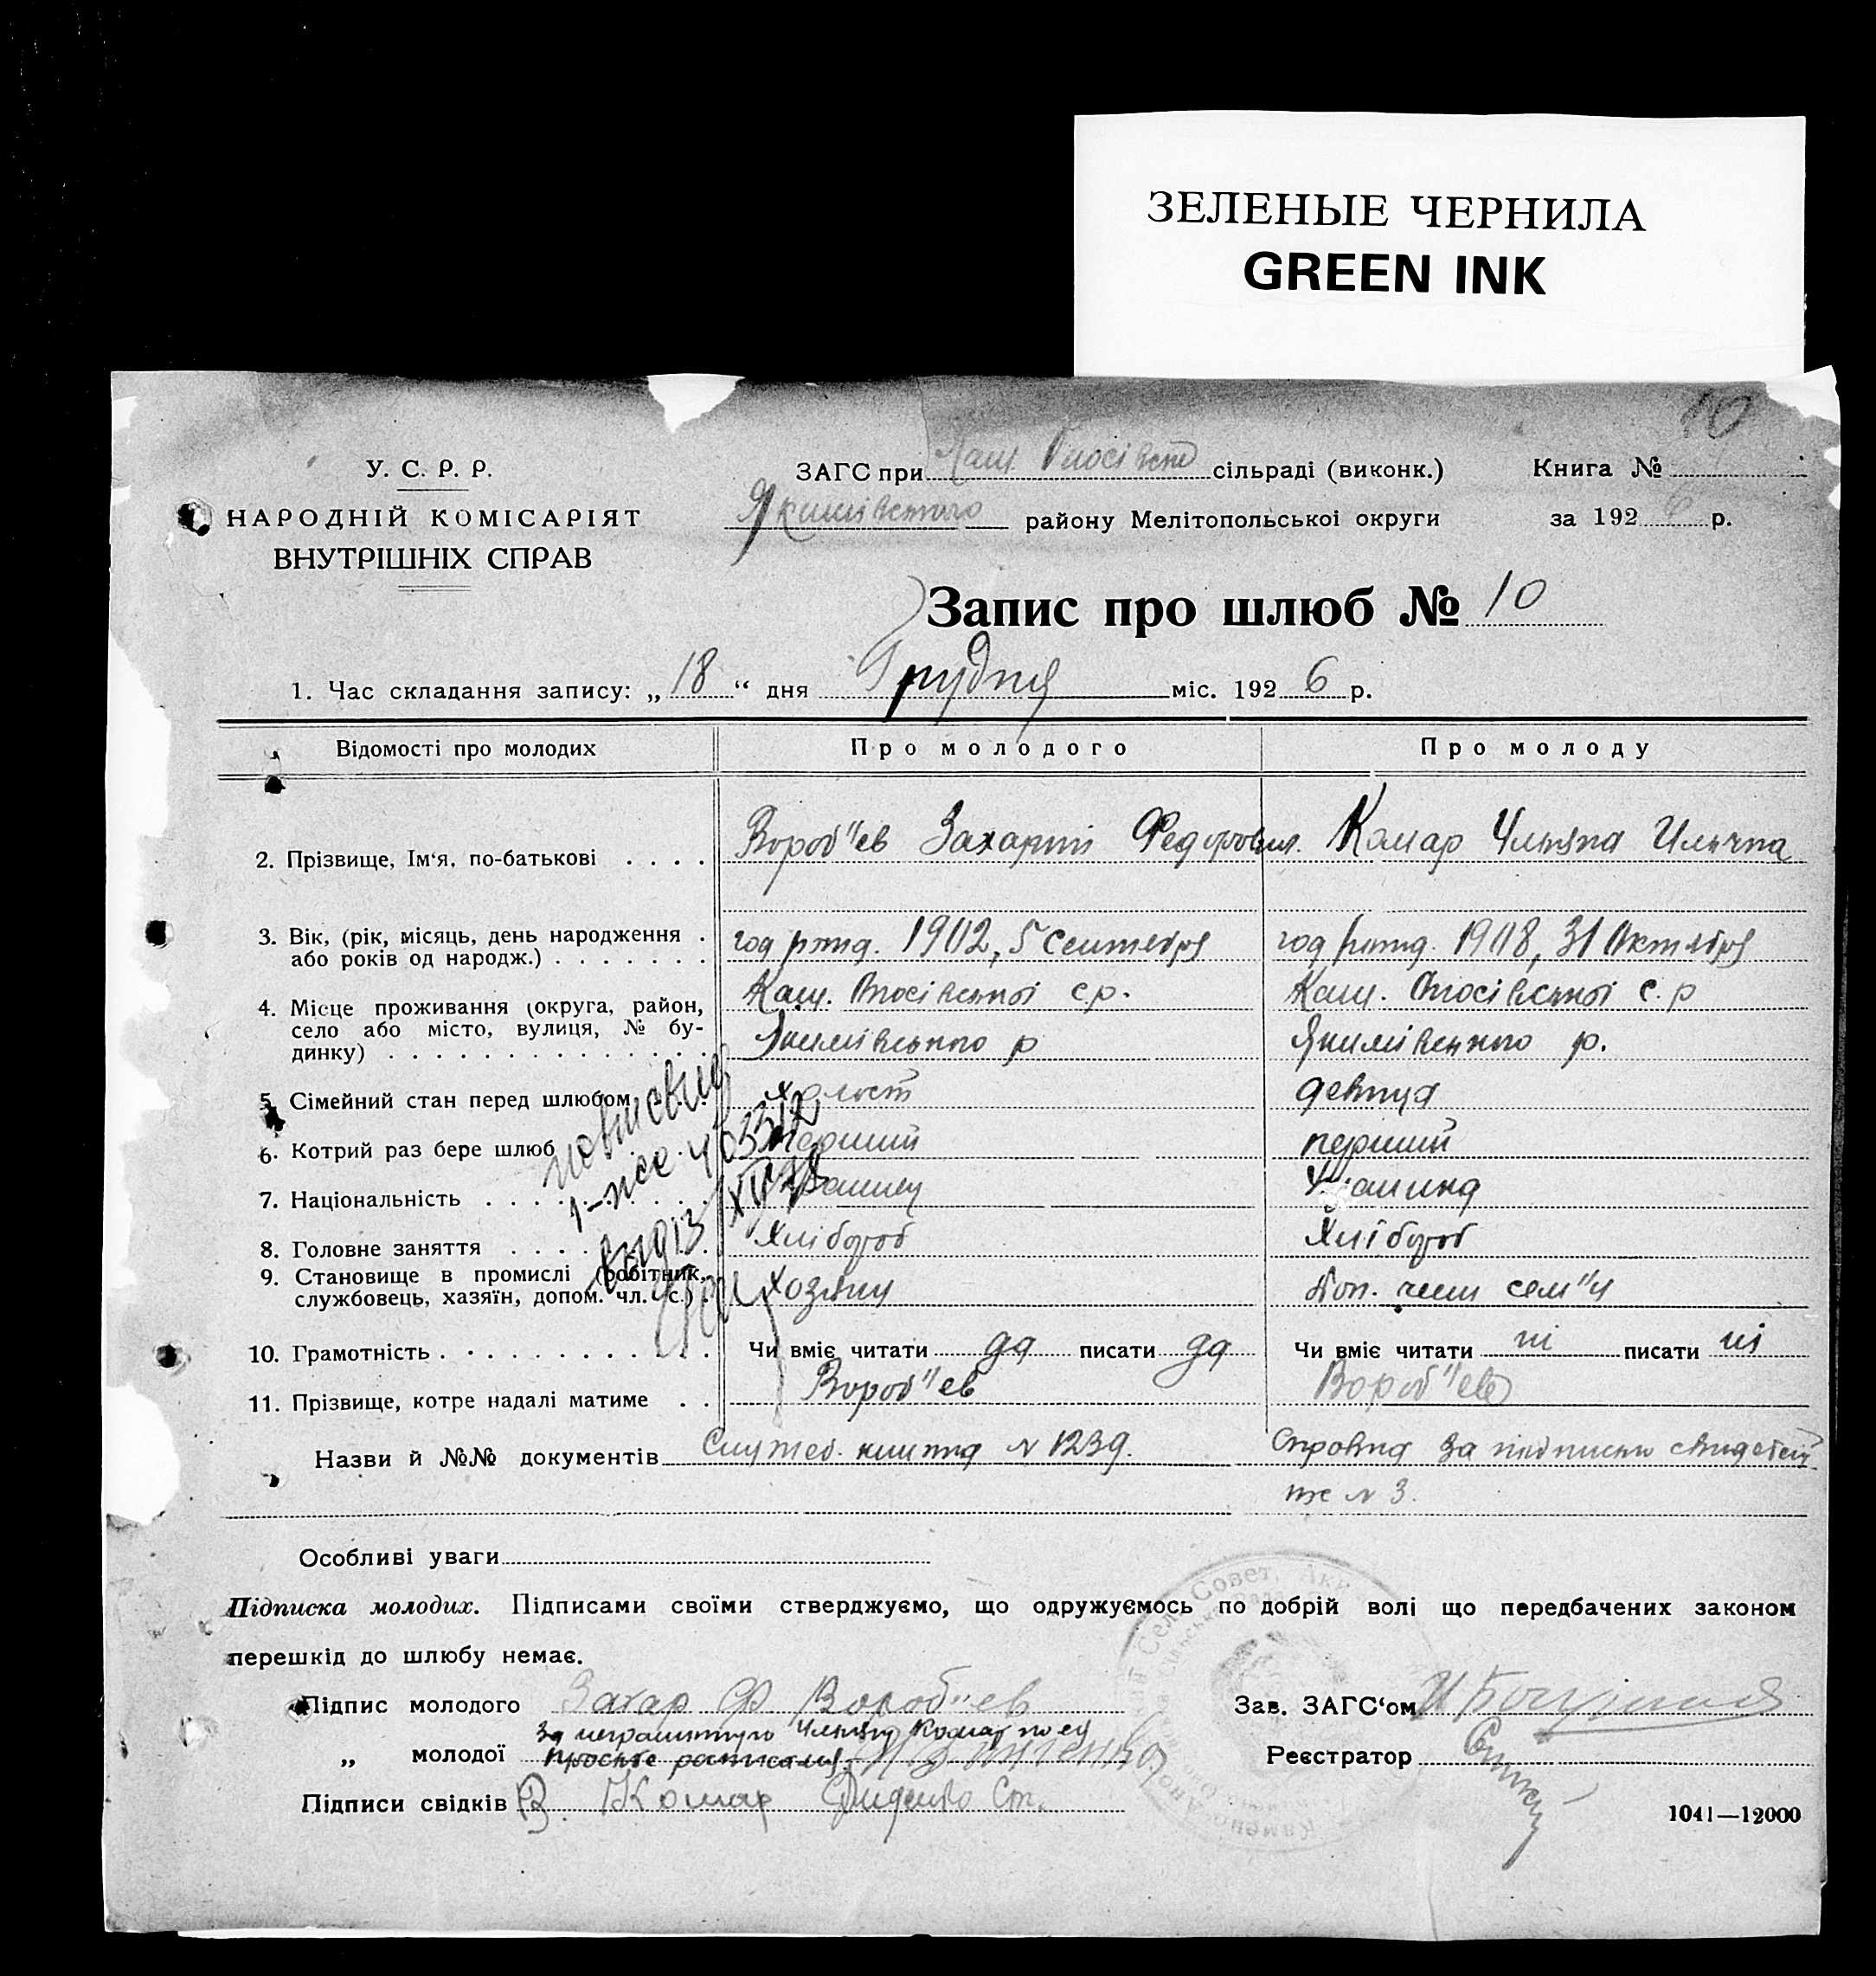 ЗЕЛЕНЫЕ ЧЕРНИЛА
GREEN INK
10
У. С. Р. Р.
НАРОДНІЙ КОМІСАРІЯТ
ВНУТРІШНІХ СПРАВ
ЗАГС при сільраді (виконк.)
Книга №
Якимівского району Мелітопольскої округи
за 1926 р.
Запис про шлюб № 10
1. Час складання запису: „18“ дня Грудня міс. 1926 р.
Відомості про молодих
Про молодого
Про молоду
2. Прізвище, Ім'я, по-батькові
Вороб"ев Захарий Федорович.
Камар Ульяна Ильична
3. Вік, (рік, місяць, день народження
або років од народж.)
год рожд. 1902, 5 Сентября
год рожд. 1908, 31 Октября
4. Місце проживання (округа, район,
село або місто, вулиця, № бу-
динку)
с.р.
с.р
Якимівського р
Якимівського р.
5. Сімейний стан перед шлюбом
холост
девиця
6. Котрий раз бере шлюб
перший
перший
7. Національність
8. Головне заняття
Хлібороб
Хлібороб
9. Становище в промислі (робітник,
службовець, хазяїн, допом. чл. с.)
Хозяин
Доп. член сем"и
10. Грамотність
Чи вміє читати да писати да
Чи вміє читати ні писати ні
11. Прізвище, котре надалі матиме
Вороб"ев
Вороб"ева
Назви й №№ документів
книжка № 1239.
за
№ 3.
Особливі уваги
Підписка молодих. Підписами своїми стверджуємо, що одружуємось по добрій волі що передбачених законом
перешкід до шлюбу немає.
Підпис молодого Захар Ф Вороб"ев
Зав. ЗАГС'ом
За неграмотную Ульяну Комар по ея
„ молодої просьбе
Реєстратор
Підписи свідків Комар Диденко Ст.
1041—12000